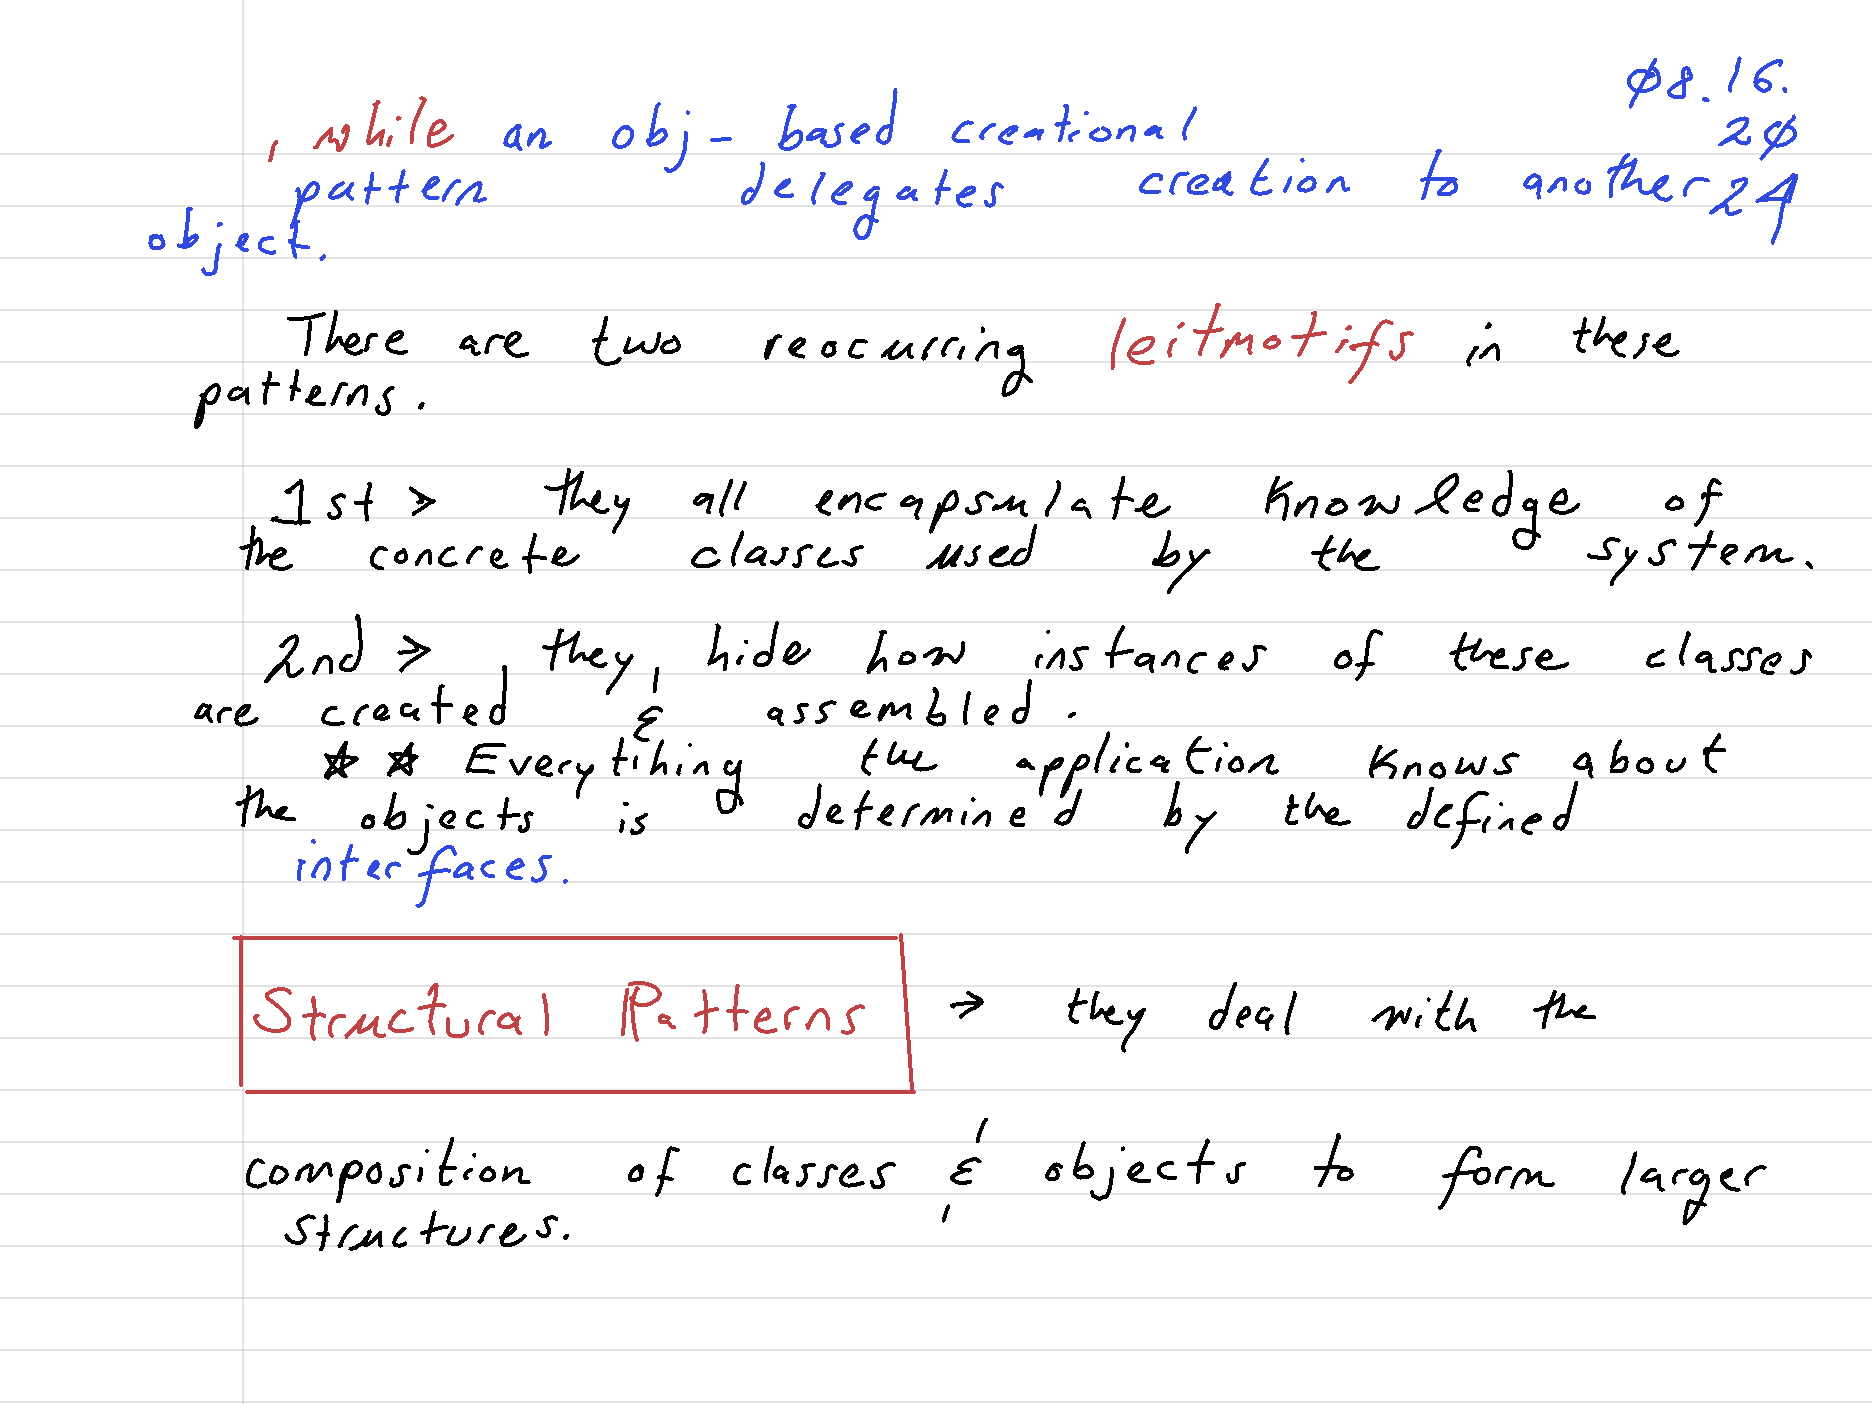 ø8.16.
, while an obj- based creational
2ø
pattern delegates creation to another
24
object.
There are two reocurring leitmotifs in these
patterns.
1st > they all encapsulate knowledge of
the concrete classes used by the system.
2nd → they hide how instances of these classes
are created & assembled.
☆ ☆ Everything the application knows about
the objects is determined by the defined
interfaces.
Structural Patterns → they deal with the
composition of classes & objects to form larger
structures.